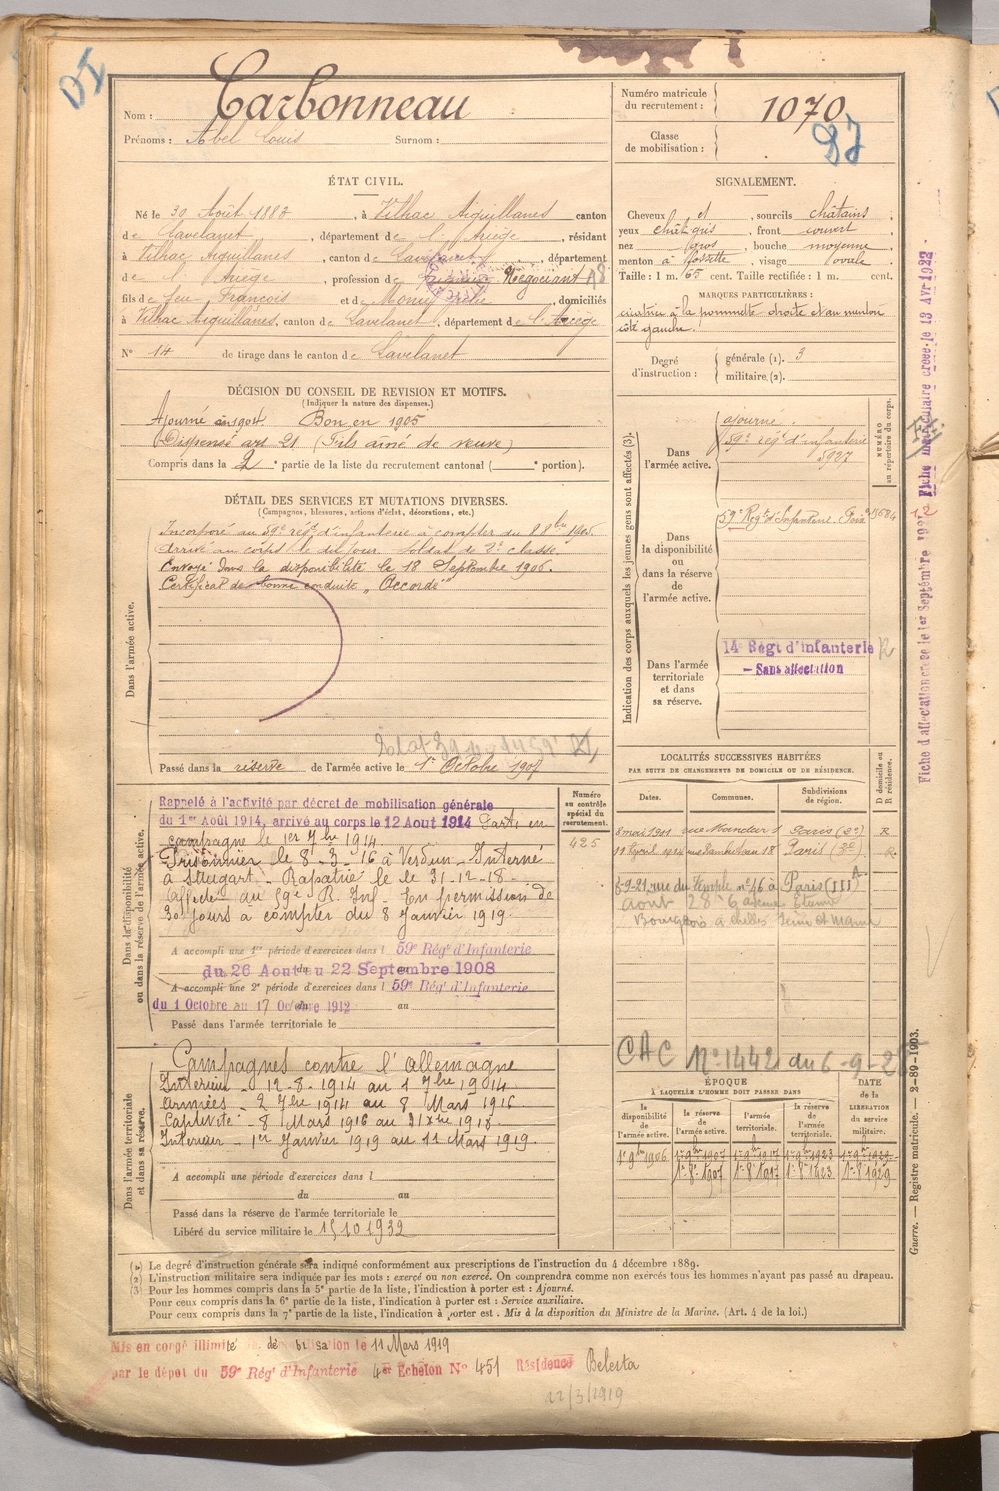 DI
Nom : Carbonneau
Prénoms : Abel Louis Surnom :
Numéro matricule du recrutement : 1070
Classe de mobilisation :
ÉTAT CIVIL.
Né le 30 Août 1883, à Vilhac Aiguillanes canton
de Lavelanet, département de l'Ariège, résidant
à Vilhac Aiguillanes, canton de Lavelanet, département
de l'Ariège, profession de Négociant
fils de feu François et de domiciliés
à Vilhac Aiguillanes, canton de Lavelanet, département de l'Ariège
N° 14 de tirage dans le canton de Lavelanet
SIGNALEMENT.
Cheveux et, sourcils châtains,
yeux chât gris, front couvert
nez gros, bouche moyenne
menton à fossette, visage ovale.
Taille : 1 m. 65 cent. Taille rectifiée : 1 m. cent.
MARQUES PARTICULIÈRES :
cicatrice à la pommette droite et au menton
côté gauche.
Degré d'instruction : générale (1). 3
militaire (2).
DÉCISION DU CONSEIL DE REVISION ET MOTIFS.
(Indiquer la nature des dispenses.)
Ajourné en 1904. Bon en 1905
Dispensé art 21 (Fils aîné de veuve)
Compris dans la 2e partie de la liste du recrutement cantonal ( e portion).
DÉTAIL DES SERVICES ET MUTATIONS DIVERSES.
(Campagnes, blessures, actions d'éclat, décorations, etc.)
Dans l'armée active.
Incorporé au 59e régt d'infanterie à compter du 8 8bre 1905.
Arrivé au corps le dit jour. Soldat de 2e classe.
Envoyé dans la disponibilité le 18 Septembre 1906.
Certificat de bonne conduite „ Accordé"
Passé dans la réserve de l'armée active le 1er Octobre 1907
Indication des corps auxquels les jeunes gens sont affectés (3).
NUMÉRO au répertoire du corps.
Dans l'armée active.
ajourné.
59e régt d'infanterie
5927
Dans la disponibilité ou dans la réserve de l'armée active.
59e Régt d'Infanterie.
Dans l'armée territoriale et dans sa réserve.
14 Régt d'infanterie
– Sans affectation
Fiche d'affectation créée le 1er Septembre
Fiche matriculaire créée le 13 Avr 1922
LOCALITÉS SUCCESSIVES HABITÉES
PAR SUITE DE CHANGEMENTS DE DOMICILE OU DE RÉSIDENCE.
Dates. Communes. Subdivisions de région. D domicile ou R résidence.
8 mai 1911 rue Mandar 1 Paris (2e) R
11 Avril 1912 rue Rambuteau 18 Paris (3e) R
5-9-21, rue du Temple n° 46 à Paris (III)
Aout 28 6 avenue Etienne
à Chelles Seine et Marne
CAC N° 1442 du 6-9-2
Dans la disponibilité ou dans la réserve de l'armée active.
Numéro au contrôle spécial du recrutement.
425
Rappelé à l'activité par décret de mobilisation générale
du 1er Août 1914, arrivé au corps le 12 Aout 1914 Parti en
campagne le 1er 7bre 1914
Prisonnier le 8-3-16 à Verdun – Interné
à Stuggart – Rapatrié le le 31-12-18.
Affecté au 59e R. Inf – En permission de
30 jours à compter du 8 Janvier 1919.
A accompli une 1re période d'exercices dans l 59e Régt d'Infanterie
du 26 Aout au 22 Septembre 1908
A accompli une 2e période d'exercices dans l 59e Régt d'Infanterie
du 1 Octobre au 17 Octobre 1912 au
Passé dans l'armée territoriale le
Dans l'armée territoriale et dans sa réserve.
Campagnes contre l'Allemagne
Intérieur – 12-8-1914 au 1 7bre 1914
Armées – 2 7bre 1914 au 8 Mars 1916
Captivité – 8 Mars 1916 au 31 Xbre 1918
Intérieur – 1er Janvier 1919 au 11 Mars 1919.
A accompli une période d'exercices dans l
du au
Passé dans la réserve de l'armée territoriale le
Libéré du service militaire le 15 10 1932
ÉPOQUE
À LAQUELLE L'HOMME DOIT PASSER DANS
DATE de la LIBÉRATION du service militaire.
la disponibilité de l'armée active. la réserve de l'armée active. l'armée territoriale. la réserve de l'armée territoriale.
1er 9bre 1906 1er 9bre 1907 1er 9bre 1917 1er 9bre 1923
1er 8re 1907 1er 8re 1917 1er 8re 1923 1er 8re 1929
Guerre. — Registre matricule. — 2-89-1903.
(1) Le degré d'instruction générale sera indiqué conformément aux prescriptions de l'instruction du 4 décembre 1889.
(2) L'instruction militaire sera indiquée par les mots : exercé ou non exercé. On comprendra comme non exercés tous les hommes n'ayant pas passé au drapeau.
(3) Pour les hommes compris dans la 5e partie de la liste, l'indication à porter est : Ajourné.
Pour ceux compris dans la 6e partie de la liste, l'indication à porter est : Service auxiliaire.
Pour ceux compris dans la 7e partie de la liste, l'indication à porter est : Mis à la disposition du Ministre de la Marine. (Art. 4 de la loi.)
Mis en congé illimité de démobilisation le 11 Mars 1919
par le dépôt du 59e Régt d'Infanterie 4e Echelon N° 451 Résidence Belesta
22/3/1919